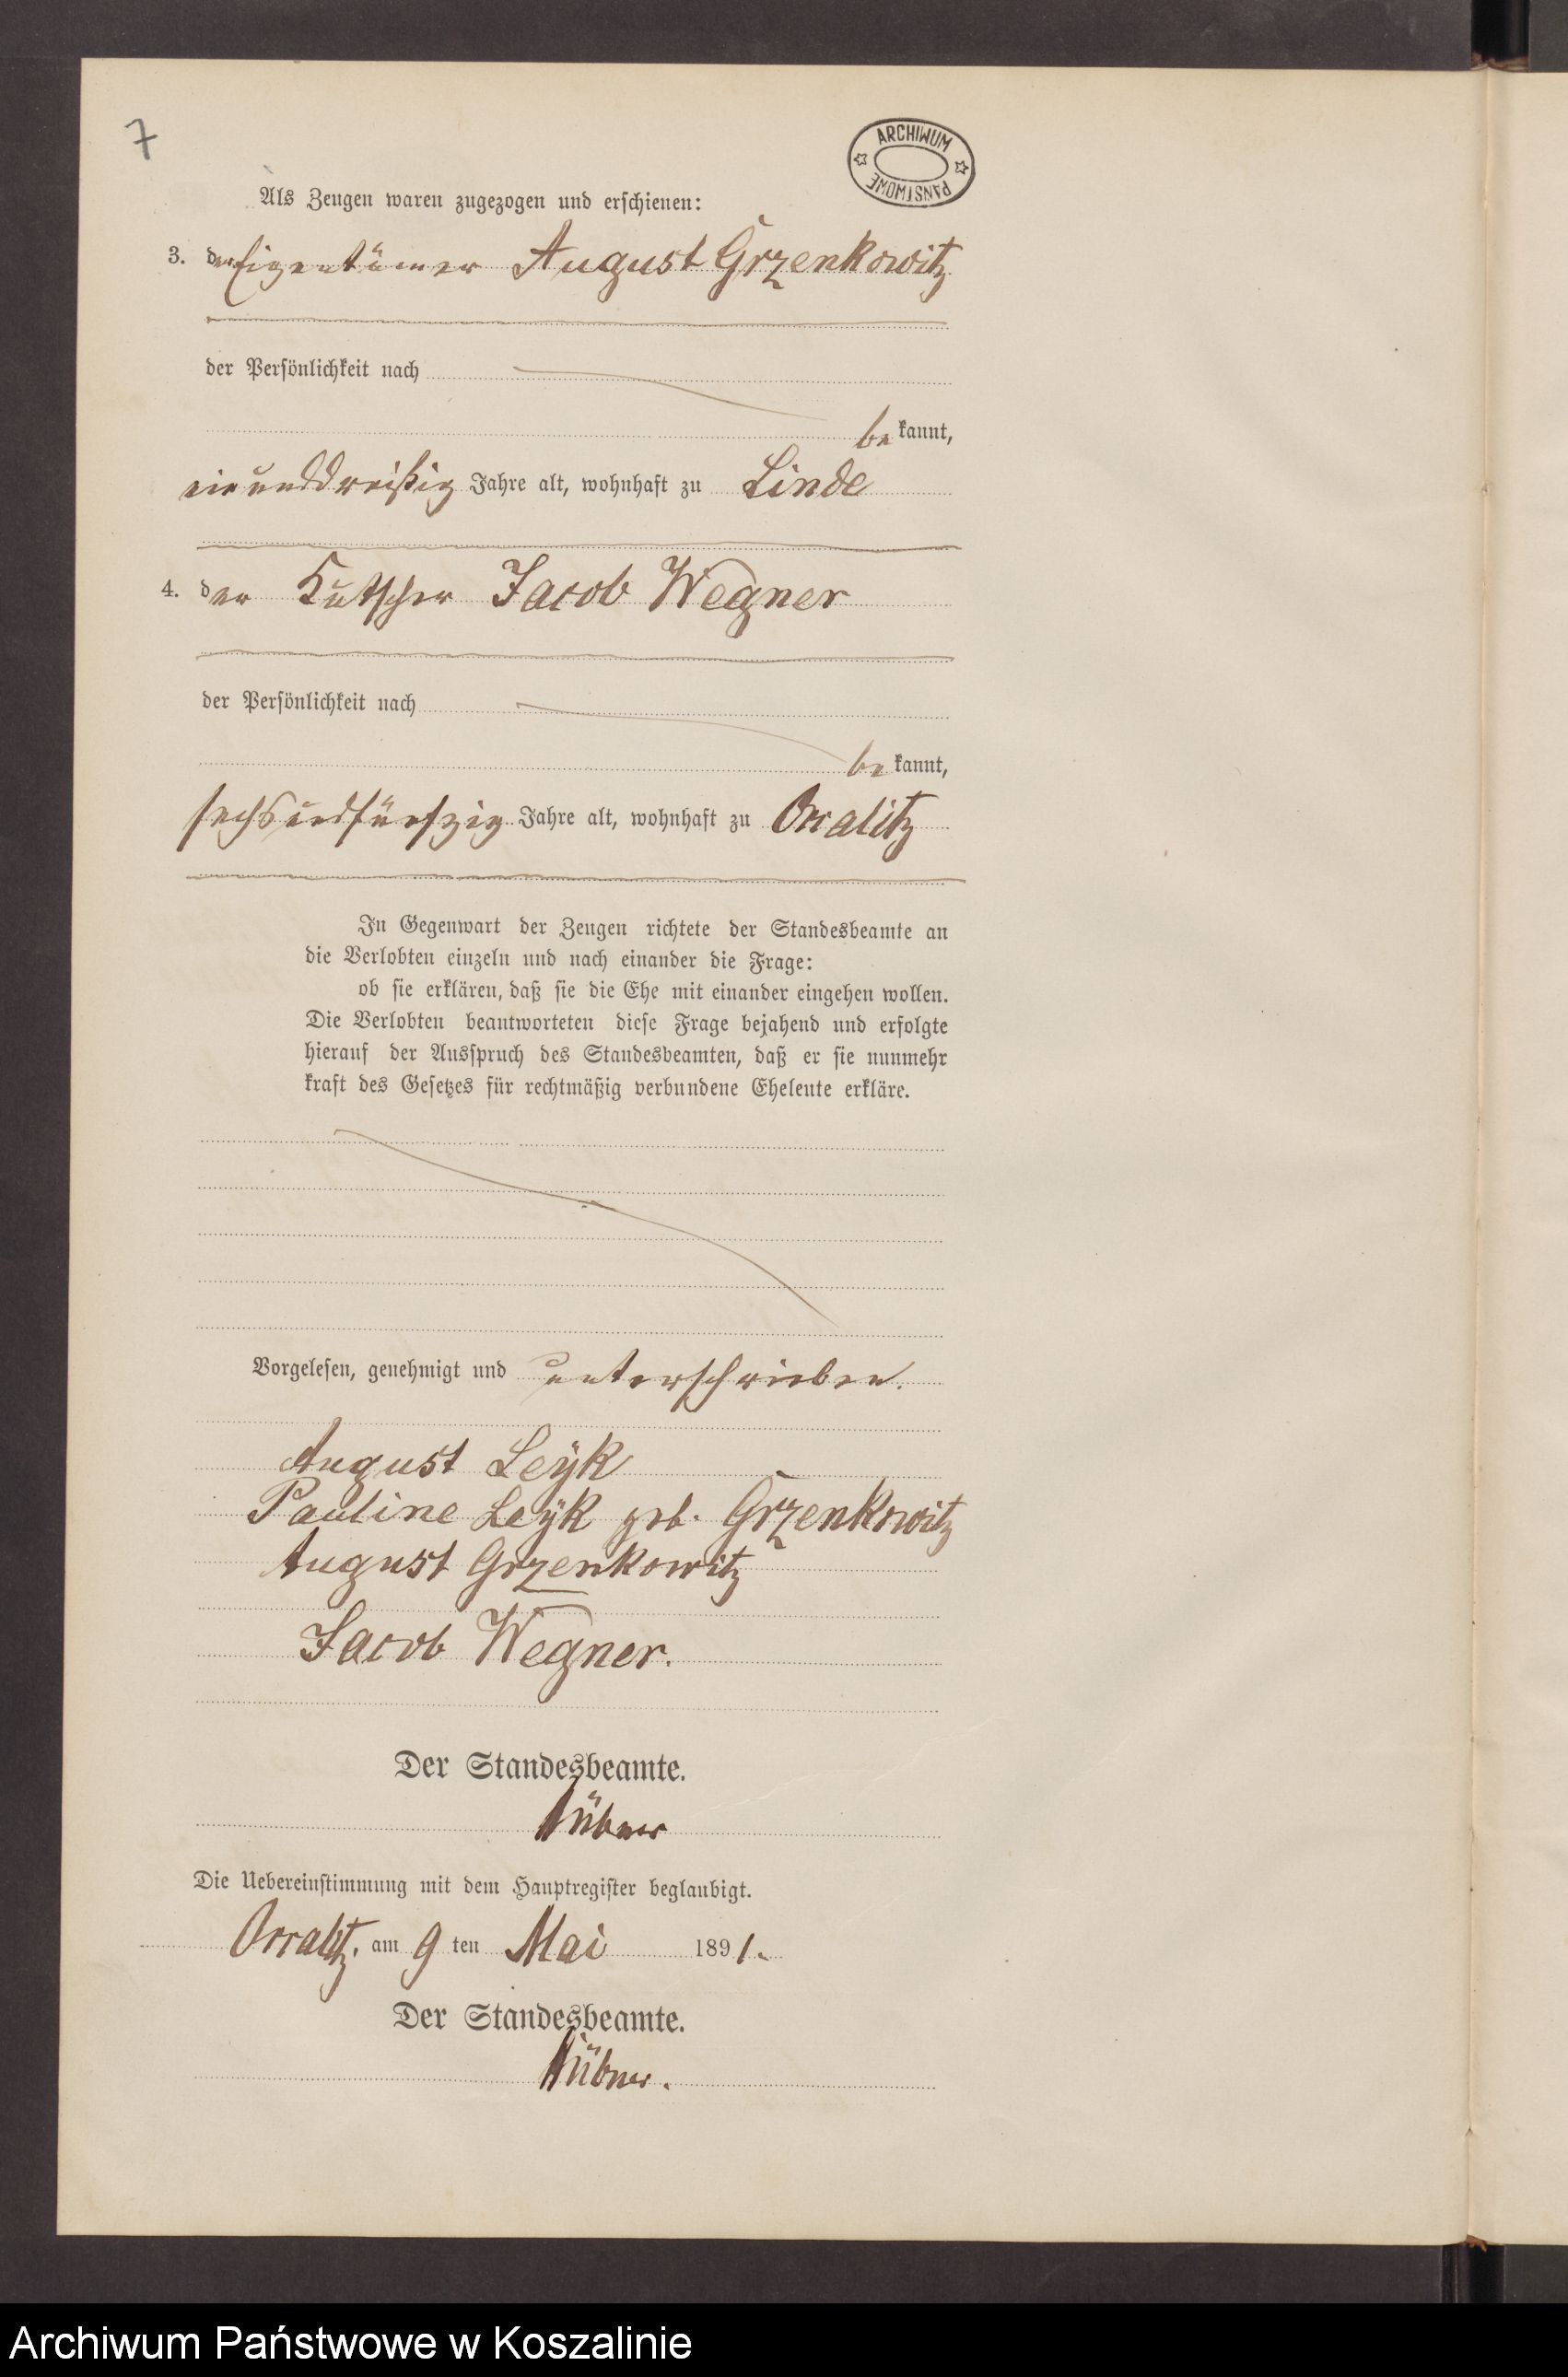 7
ARCHIWUM PAŃSTWOWE
Als Zeugen waren zugezogen und erschienen:
3. der Eigentümer August Grzenkowitz
der Persönlichkeit nach
bekannt,
einunddreißig Jahre alt, wohnhaft zu Linde
4. der Kutscher Jacob Wegner
der Persönlichkeit nach
bekannt,
sechsundfünfzig Jahre alt, wohnhaft zu Occalitz
In Gegenwart der Zeugen richtete der Standesbeamte an
die Verlobten einzeln und nach einander die Frage:
ob sie erklären, daß sie die Ehe mit einander eingehen wollen.
Die Verlobten beantworteten diese Frage bejahend und erfolgte
hierauf der Ausspruch des Standesbeamten, daß er sie nunmehr
kraft des Gesetzes für rechtmäßig verbundene Eheleute erkläre.
Vorgelesen, genehmigt und unterschrieben.
August Leÿk
Pauline Leÿk geb. Grzenkowitz
August Grzenkowitz
Jacob Wegner.
Der Standesbeamte.
Hübner
Die Uebereinstimmung mit dem Hauptregister beglaubigt.
Occalitz, am 9 ten Mai 1891.
Der Standesbeamte.
Hübner.
Archiwum Państwowe w Koszalinie